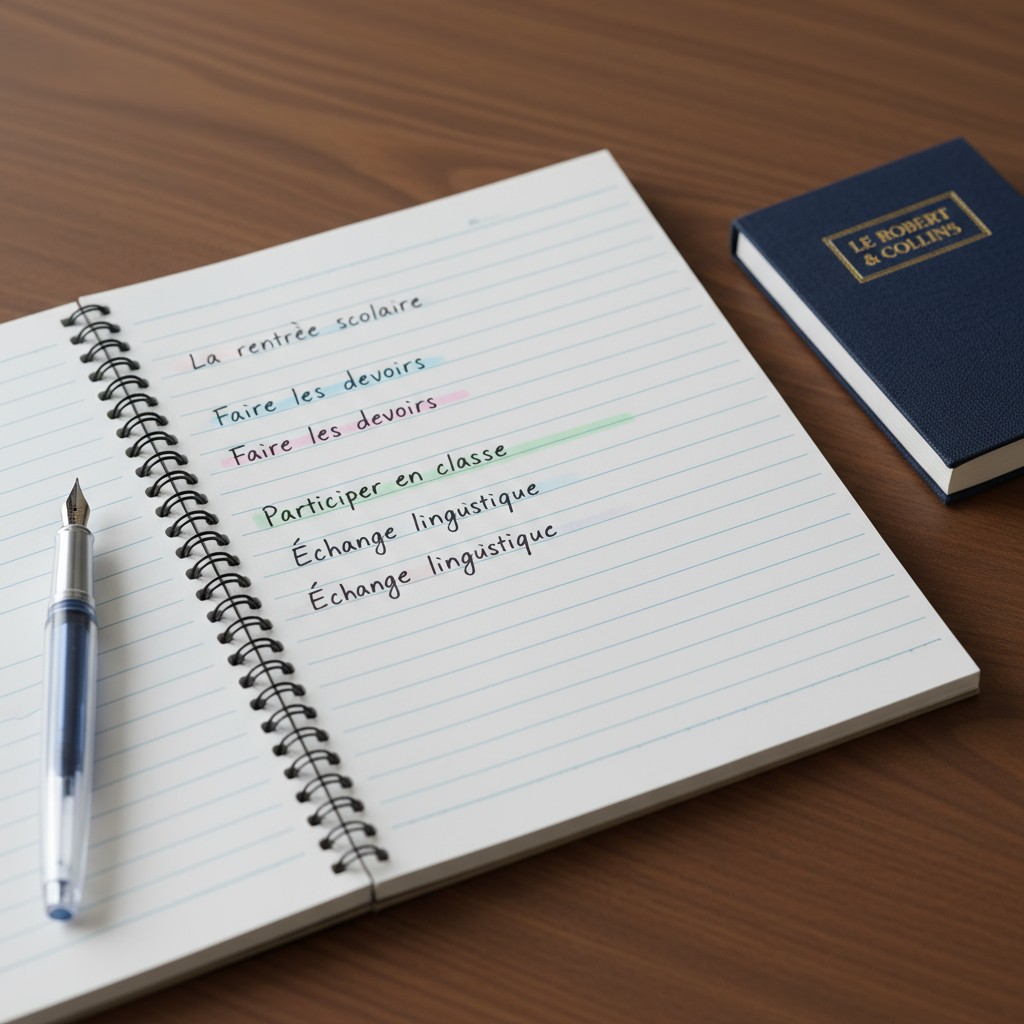 La rentrèe scolaire
Faire les devoirs
Faire les devoirs
Participer en classe
Échange lingustique
Échange lingustique
LE ROBERT
& COLLINS